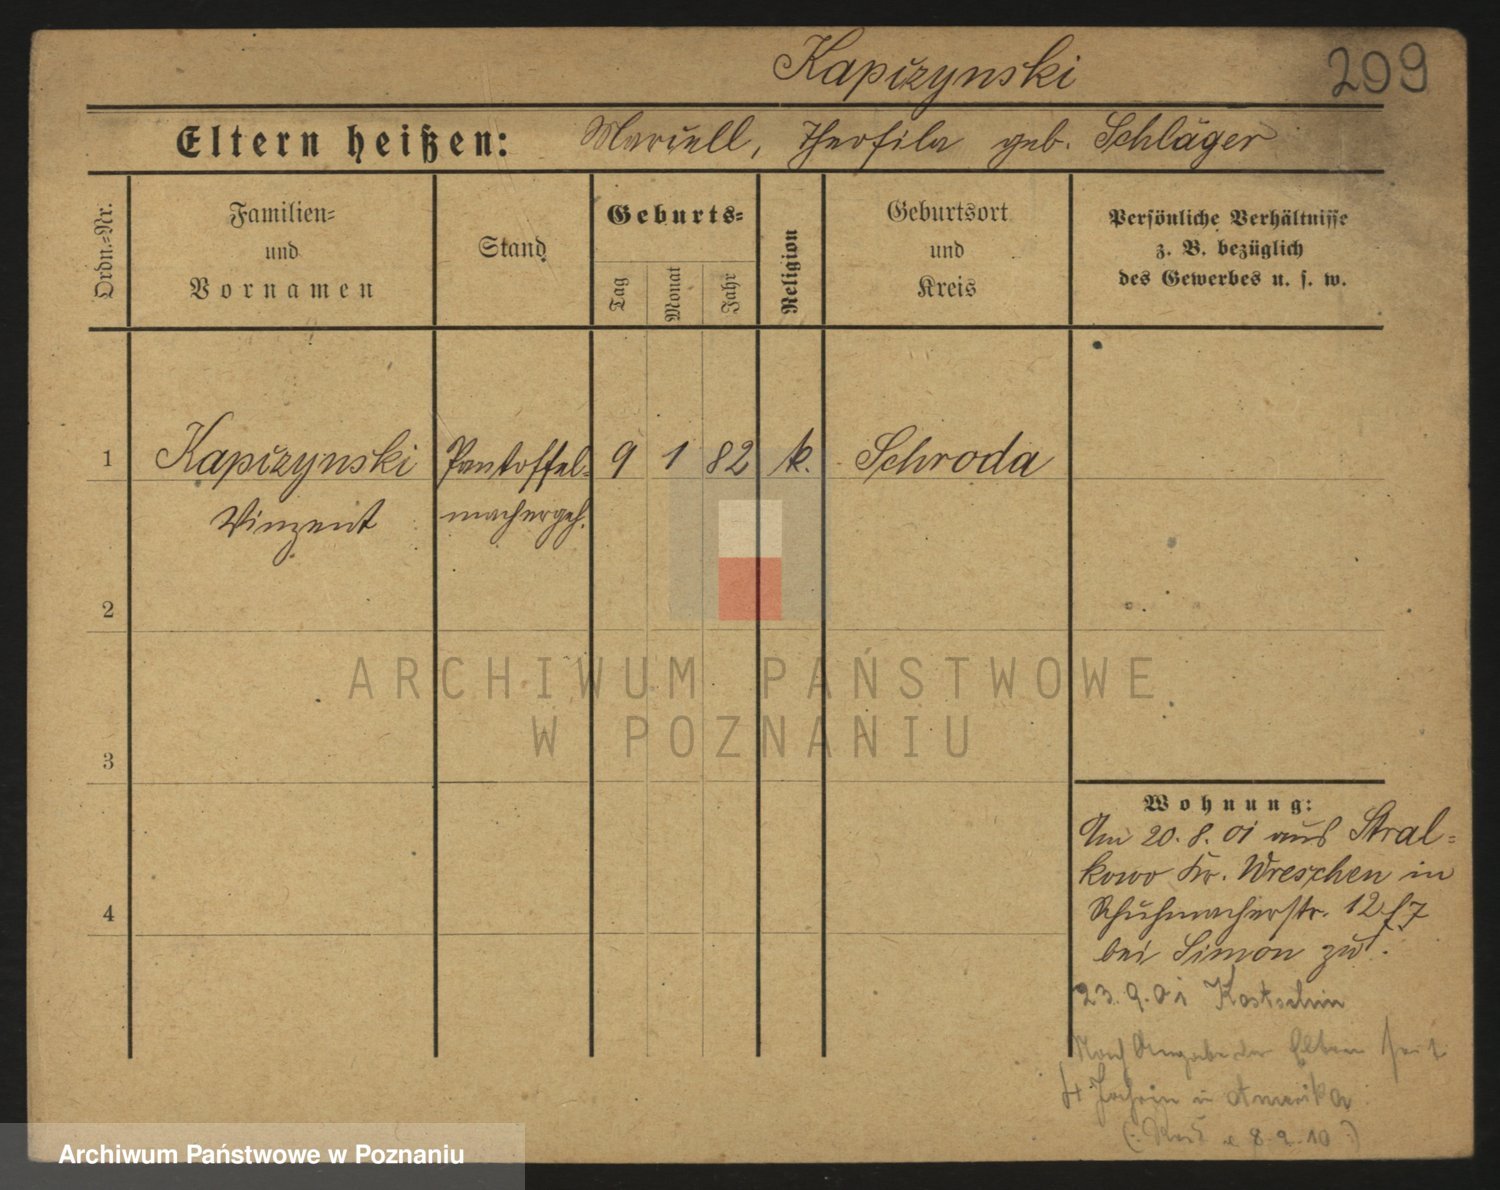 Kapčzynski
209
Eltern heißen: Marcell, Theofila geb. Schläger
Ordn.=Nr.
Familien=
und
Vornamen
Stand
Geburts=
Tag
Monat
Jahr
Religion
Geburtsort
und
Kreis
Persönliche Verhältnisse
z. B. bezüglich
des Gewerbes u. s. w.
1 Kapčzynski Pantoffel= 9 1 82 k. Schroda
Vinzent machergeh.
2
3
4
ARCHIWUM PAŃSTWOWE
W POZNANIU
Wohnung:
Am 20.8.01 aus Stral=
kowo Kr. Wreschen in
Schuhmacherstr. 12
bei Simon zu.
23.9.01 Kostschin
Nach Angabe der Eltern seit
4 Jahren in Amerika
8.2.10
Archiwum Państwowe w Poznaniu